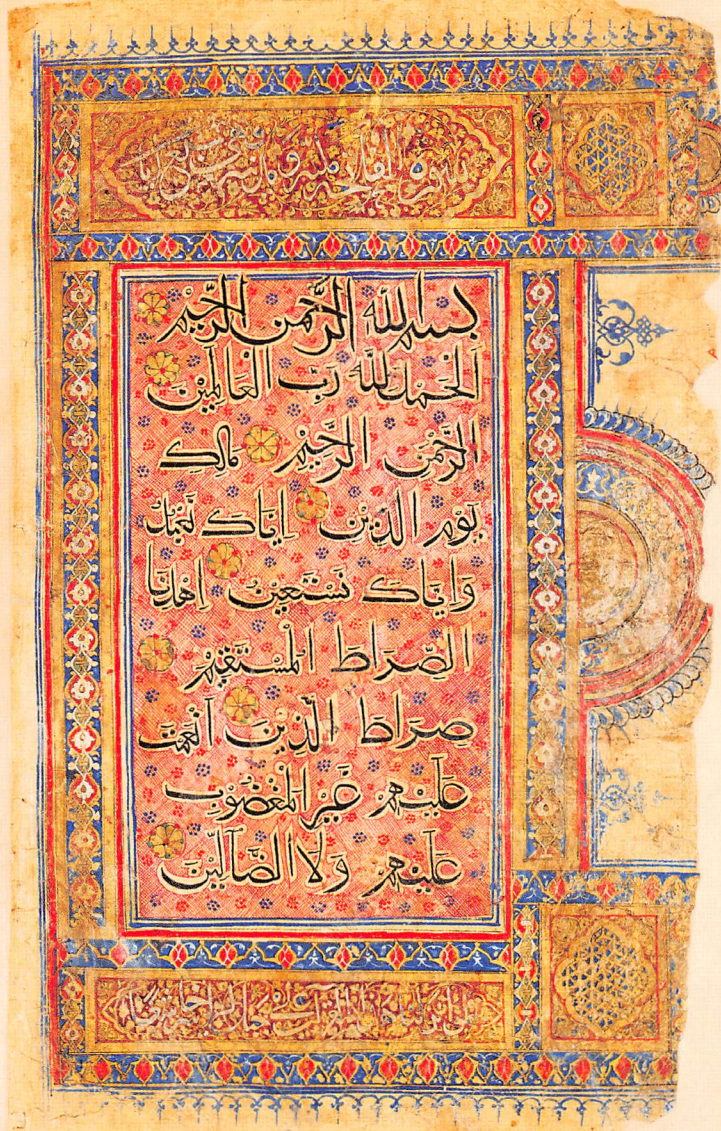 سورة الفاتحة
بسم الله الرَّحمن الرَّحيم
الحمد لله ربّ العالمين
الرَّحمن الرَّحيم مالك
يوم الدّين ايّاك نعبد
وايّاك نستعين اهدنا
الصّراط المستقيم
صراط الّذين انعمت
عليهم غير المغضوب
عليهم ولا الضّآلّين